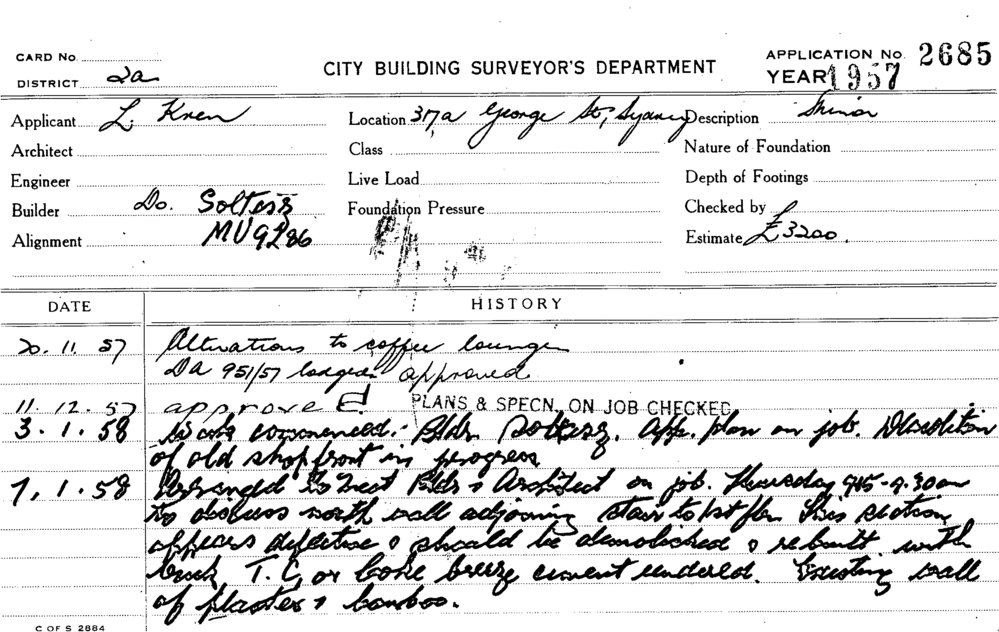 CARD No
CITY BUILDING SURVEYOR'S DEPARTMENT
APPLICATION No. 2685
DISTRICT 2a
YEAR 1957
Applicant L. Kren
Location 317a George St, Sydney
Description Minor
Architect
Class
Nature of Foundation
Engineer
Live Load
Depth of Footings
Builder Do. Soltesz
Foundation Pressure
Checked by
Alignment MU9286
Estimate £3200.
DATE HISTORY
20.11.57 Alterations to coffee lounge
Da 951/57 lodged approved
11.12.57 approved PLANS & SPECN. ON JOB CHECKED
3.1.58 Work commenced. Bldr. Soltesz. App. plan on job. Demolition
of old shopfront in progress
7.1.58 Arranged to meet Bldr & Architect on job. Thursday 9.15-9.30am
to discuss north wall adjoining stair to 1st flr. This section
appears defective & should be demolished & rebuilt with
brick, T.C. or coke breeze cement rendered. Existing wall
of plaster & bamboo.
C OF S 2884